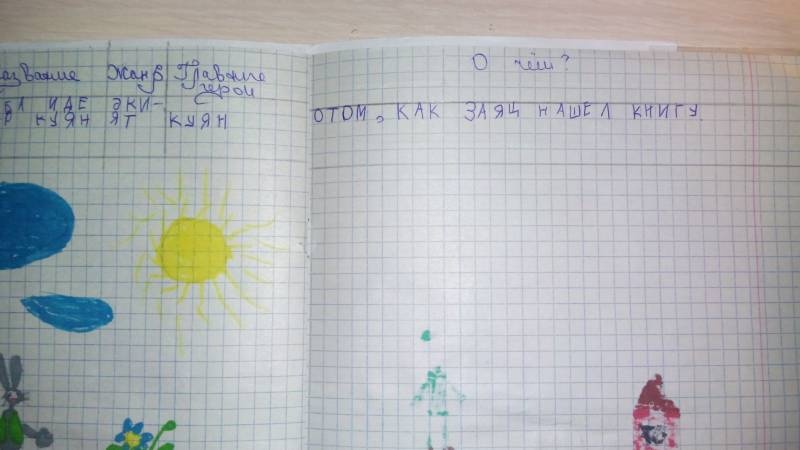 азвание Жанр Главные герои О чём?
ИДЕ ЭКИ-
КУЯН ЯТ КУЯН ОТОМ, КАК ЗАЯЦ НАШЕЛ КНИГУ.